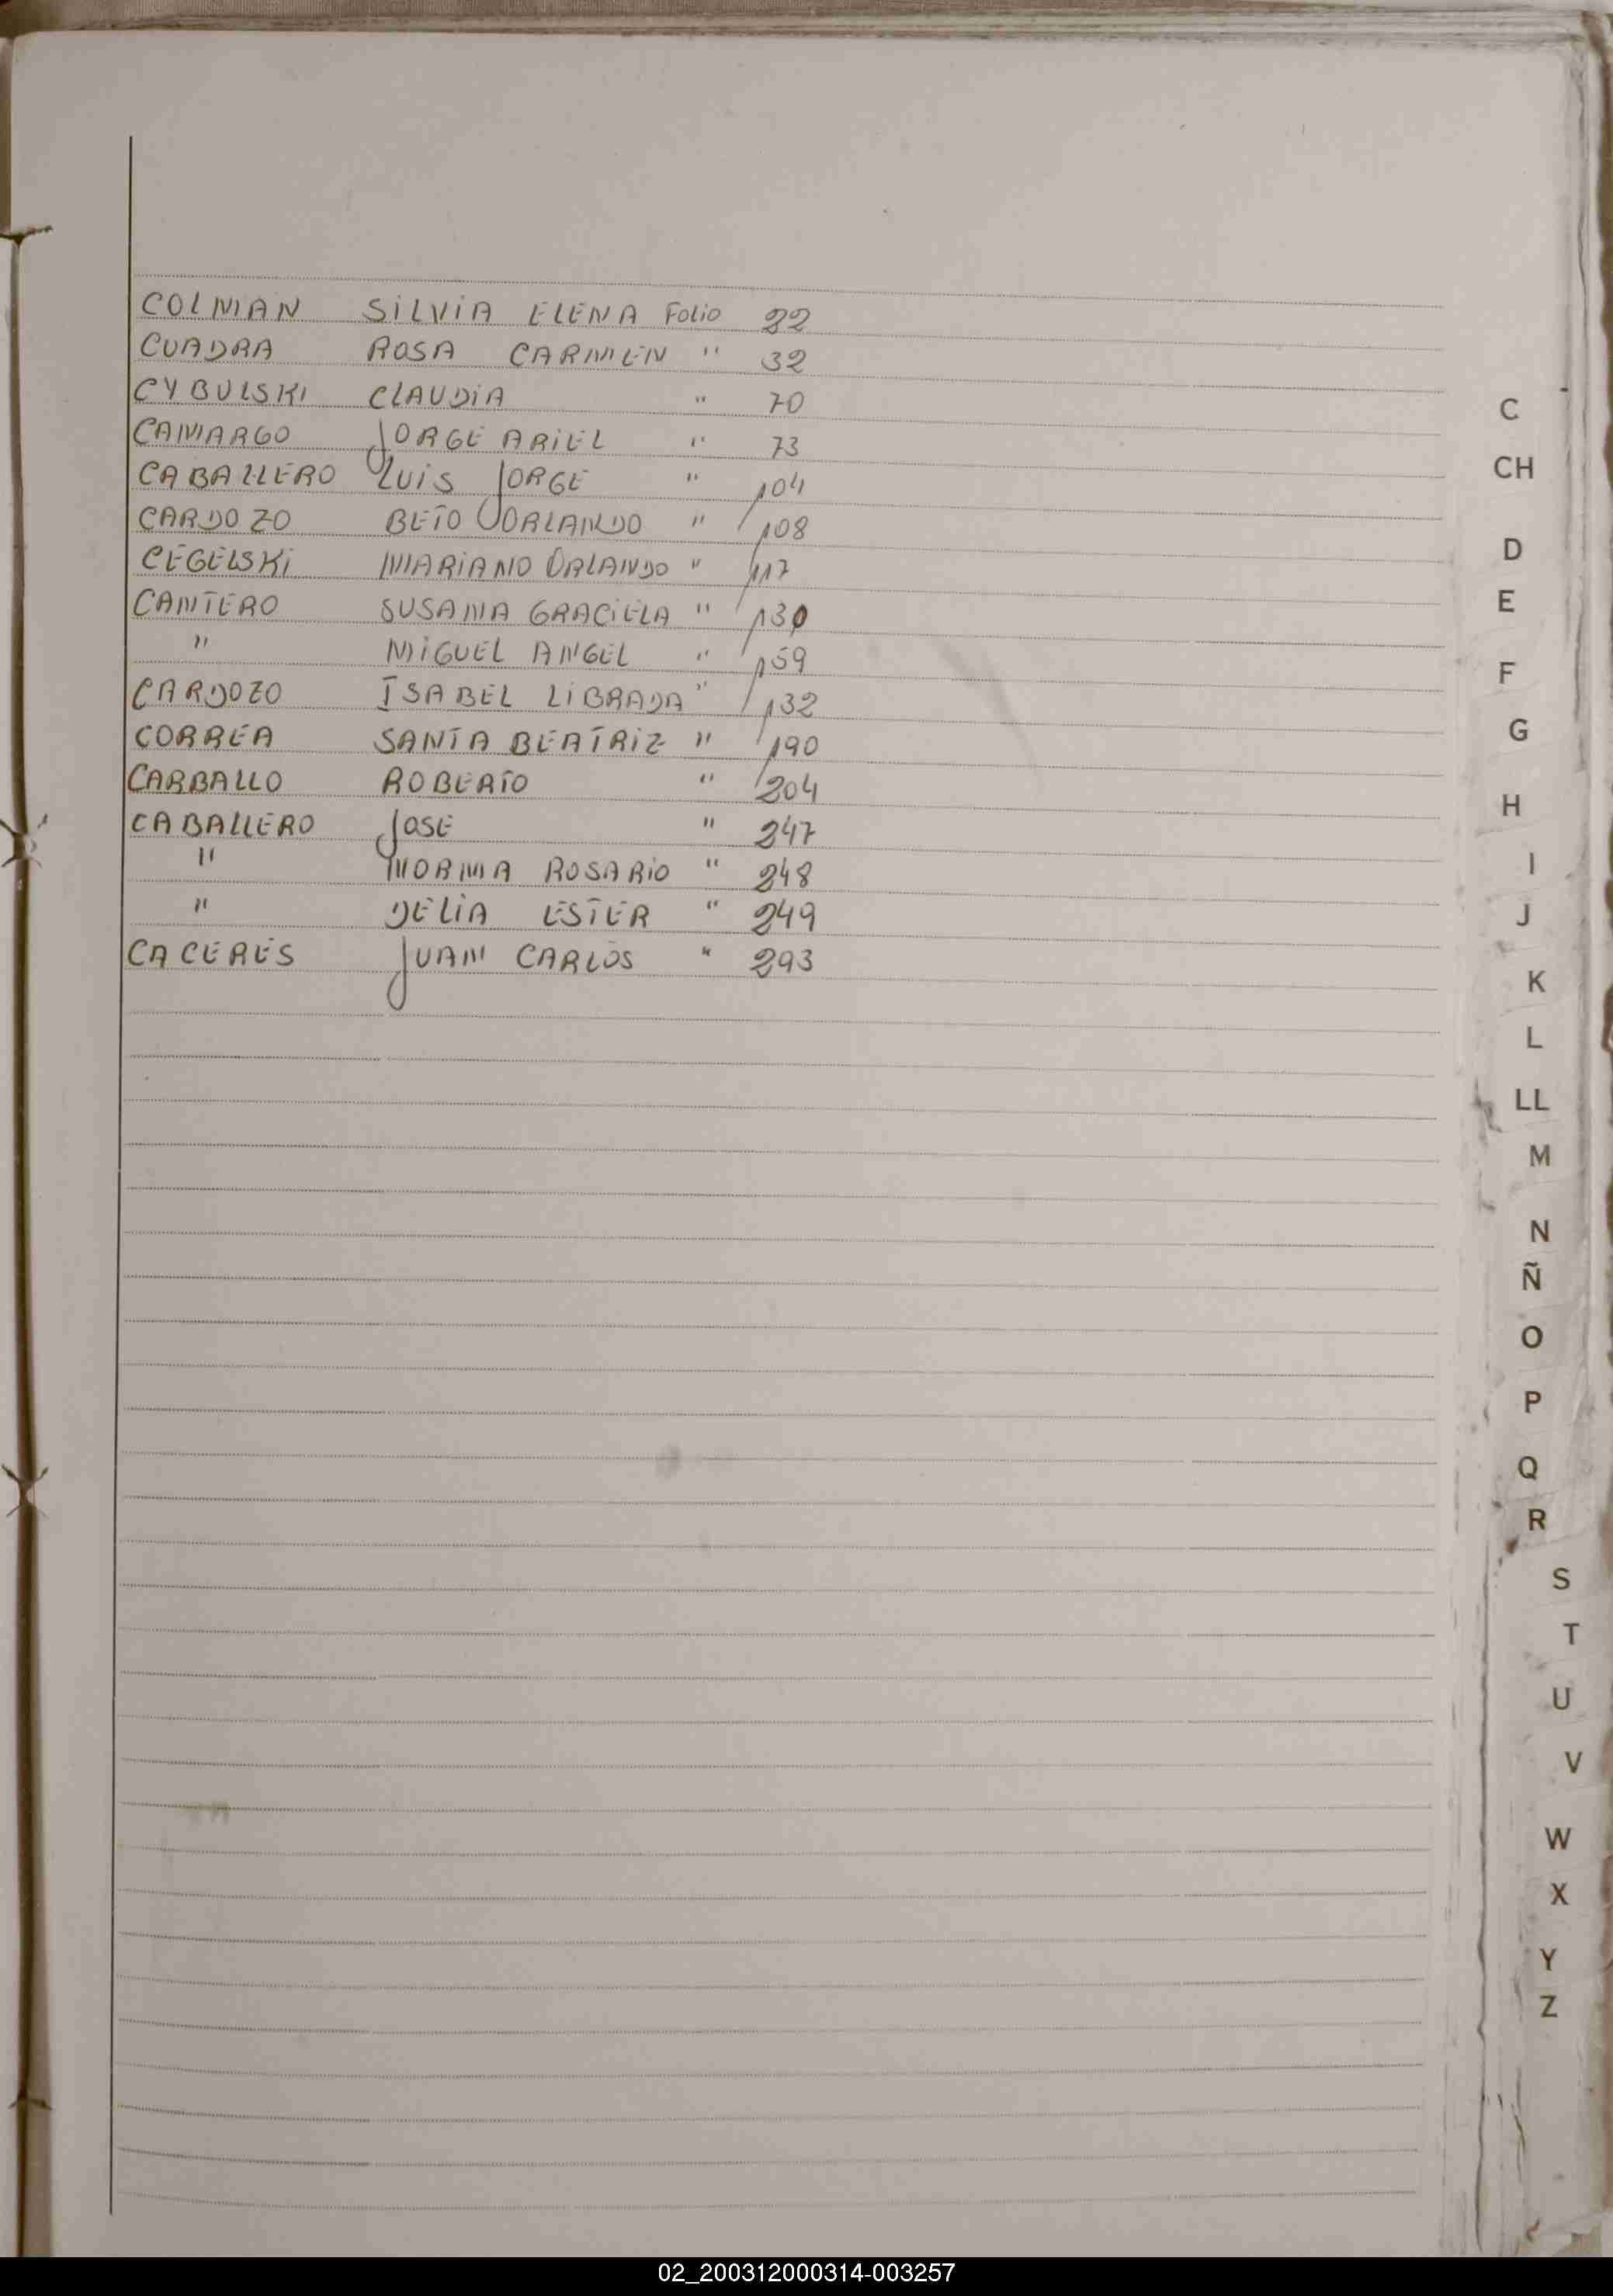 COLMAN SILVIA ELENA Folio 22
CUADRA ROSA CARMEN " 32
CYBULSKI CLAUDIA " 70
CAMARGO JORGE ARIEL " 73
CABALLERO LUIS JORGE " 104
CARDOZO BETO ORLANDO " 108
CEGELSKI MARIANO ORLANDO " 117
CANTERO SUSANA GRACIELA " 130
" MIGUEL ANGEL " 159
CARDOZO ISABEL LIBRADA " 132
CORREA SANTA BEATRIZ " 190
CARBALLO ROBERTO " 204
CABALLERO JOSE " 247
" NORMA ROSARIO " 248
" DELIA ESTER " 249
CACERES JUAN CARLOS " 293
C
CH
D
E
F
G
H
I
J
K
L
LL
M
N
Ñ
O
P
Q
R
S
T
U
V
W
X
Y
Z
02_200312000314-003257